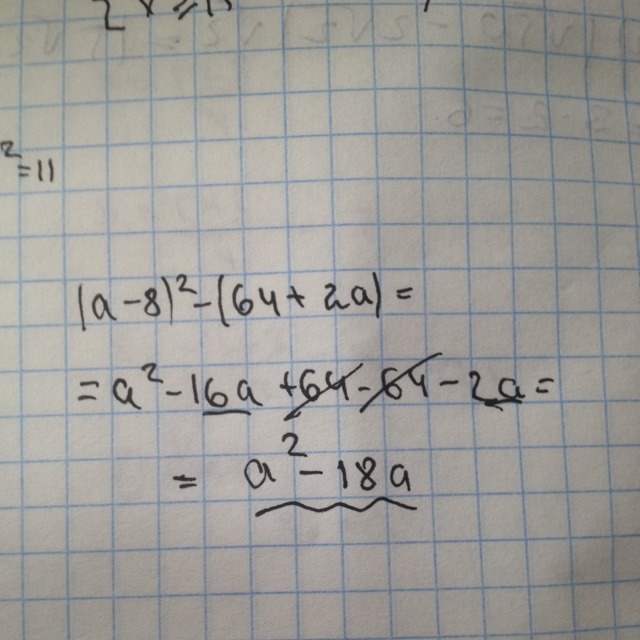 ²=11
(a-8)²-(64+2a)=
=a²-16a+64-64-2a=
=a²-18a